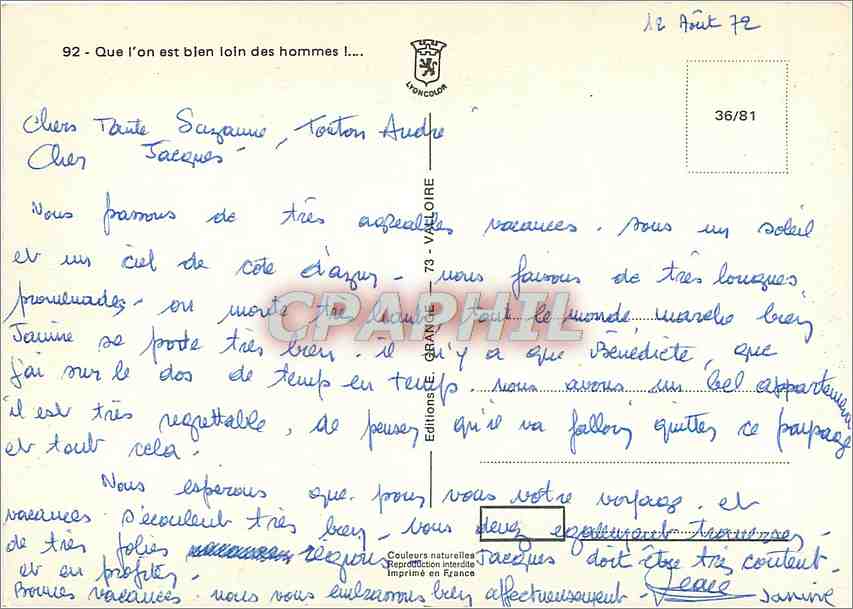 12 Août 72
92 - Que l'on est bien loin des hommes !....
LYONCOLOR
36/81
Chers Tante Suzanne, Tonton André
Cher Jacques
Nous passons de très agréables vacances. sous un soleil
et un ciel de côte d'azur - nous faisons de très longues
promenades - on monte très haut, tout le monde marche bien
Janine se porte très bien. il n'y a que Bénédicte, que
j'ai sur le dos de temps en temps. nous avons un bel appartement
il est très regrettable, de penser qu'il va falloir quitter ce paysage
et tout cela.
Nous espérons que pour vous votre voyage et
vacances s'écoulent très bien, vous devez également traverser
de très jolies régions - Jacques doit être très content.
et en profiter.
Bonnes vacances. nous vous embrassons bien affectueusement - Janine
Editions E. GRANGE — 73 - VALLOIRE
Couleurs naturelles
Reproduction interdite
Imprimé en France
CPAPHIL